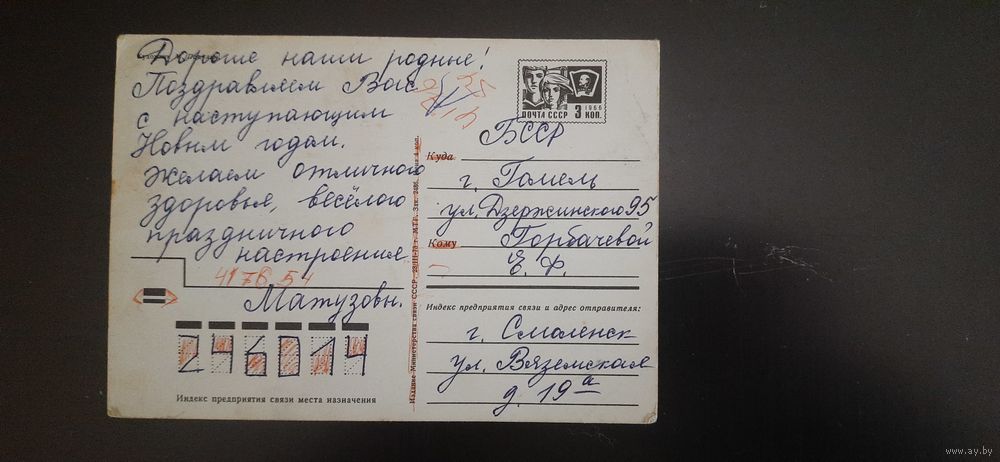 Дорогие наши родные!
Поздравляем Вас
с наступающим
Новым годом.
Желаем отличного
здоровья, весёлого
праздничного
настроения
4176 54
Матузовы.
246014
Индекс предприятия связи места назначения
Издание Министерства связи СССР.
ПОЧТА СССР 3 КОП.
1966
БССР
Куда
г. Гомель
ул. Дзержинского 95
Кому
Горбачевой
Е. Ф.
Индекс предприятия связи и адрес отправителя:
г. Смоленск
ул. Вяземская
д. 19а
www.ay.by